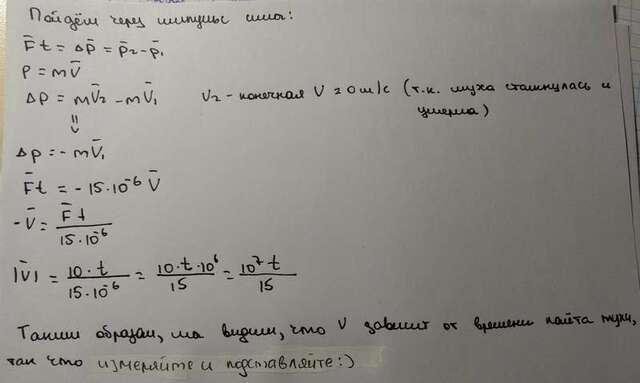 Пойдём через импульс силы:
F̄t = Δp̄ = p̄₂ - p̄₁
p = mV̄
Δp = mV̄₂ - mV̄₁ V₂ - конечная V = 0 м/с (т.к. муха столкнулась и
⇓ умерла)
Δp = - mV̄₁
F̄t = - 15·10⁻⁶ V̄
-V̄ = F̄t / 15·10⁻⁶
|V̄| = 10·t / 15·10⁻⁶ = 10·t·10⁶ / 15 = 10⁷t / 15
Таким образом, мы видим, что V зависит от времени полёта мухи,
так что измеряйте и подставляйте:)